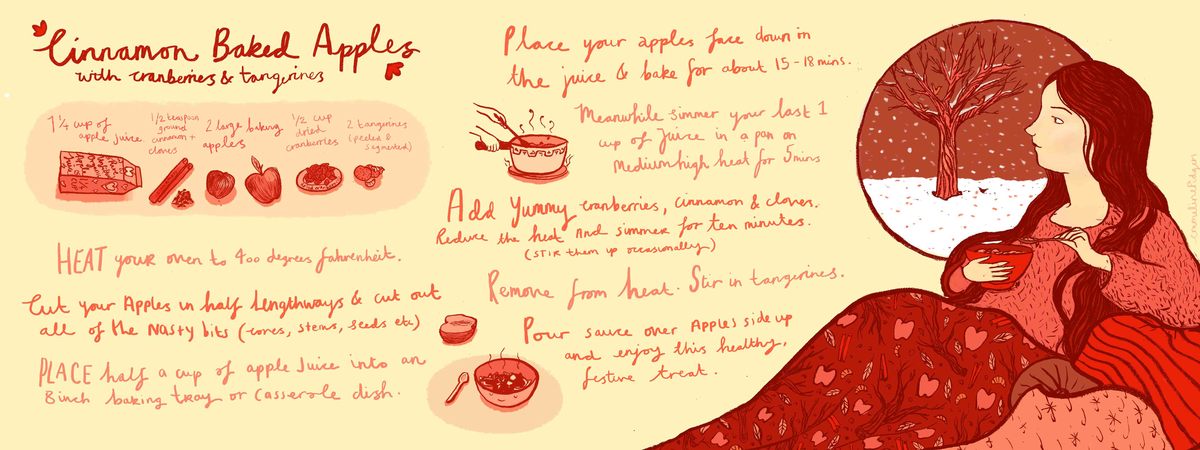 Cinnamon Baked Apples
with cranberries & tangerines
1 1/4 cup of
apple juice
1/2 teaspoon
ground
cinnamon +
cloves
2 large baking
apples
1/2 cup
dried
cranberries
2 tangerines
(peeled &
segmented)
HEAT your oven to 400 degrees fahrenheit.
Cut your Apples in half lengthways & cut out
all of the nasty bits (cores, stems, seeds etc)
PLACE half a cup of apple Juice into an
8 inch baking tray or casserole dish.
Place your apples face down in
the juice & bake for about 15-18 mins.
Meanwhile simmer your last 1
cup of Juice in a pan on
Medium high heat for 5 mins
Add yummy cranberries, cinnamon & cloves.
Reduce the heat and simmer for ten minutes.
(stir them up occasionally)
Remove from heat. Stir in tangerines.
Pour sauce over Apples side up
and enjoy this healthy,
festive treat.